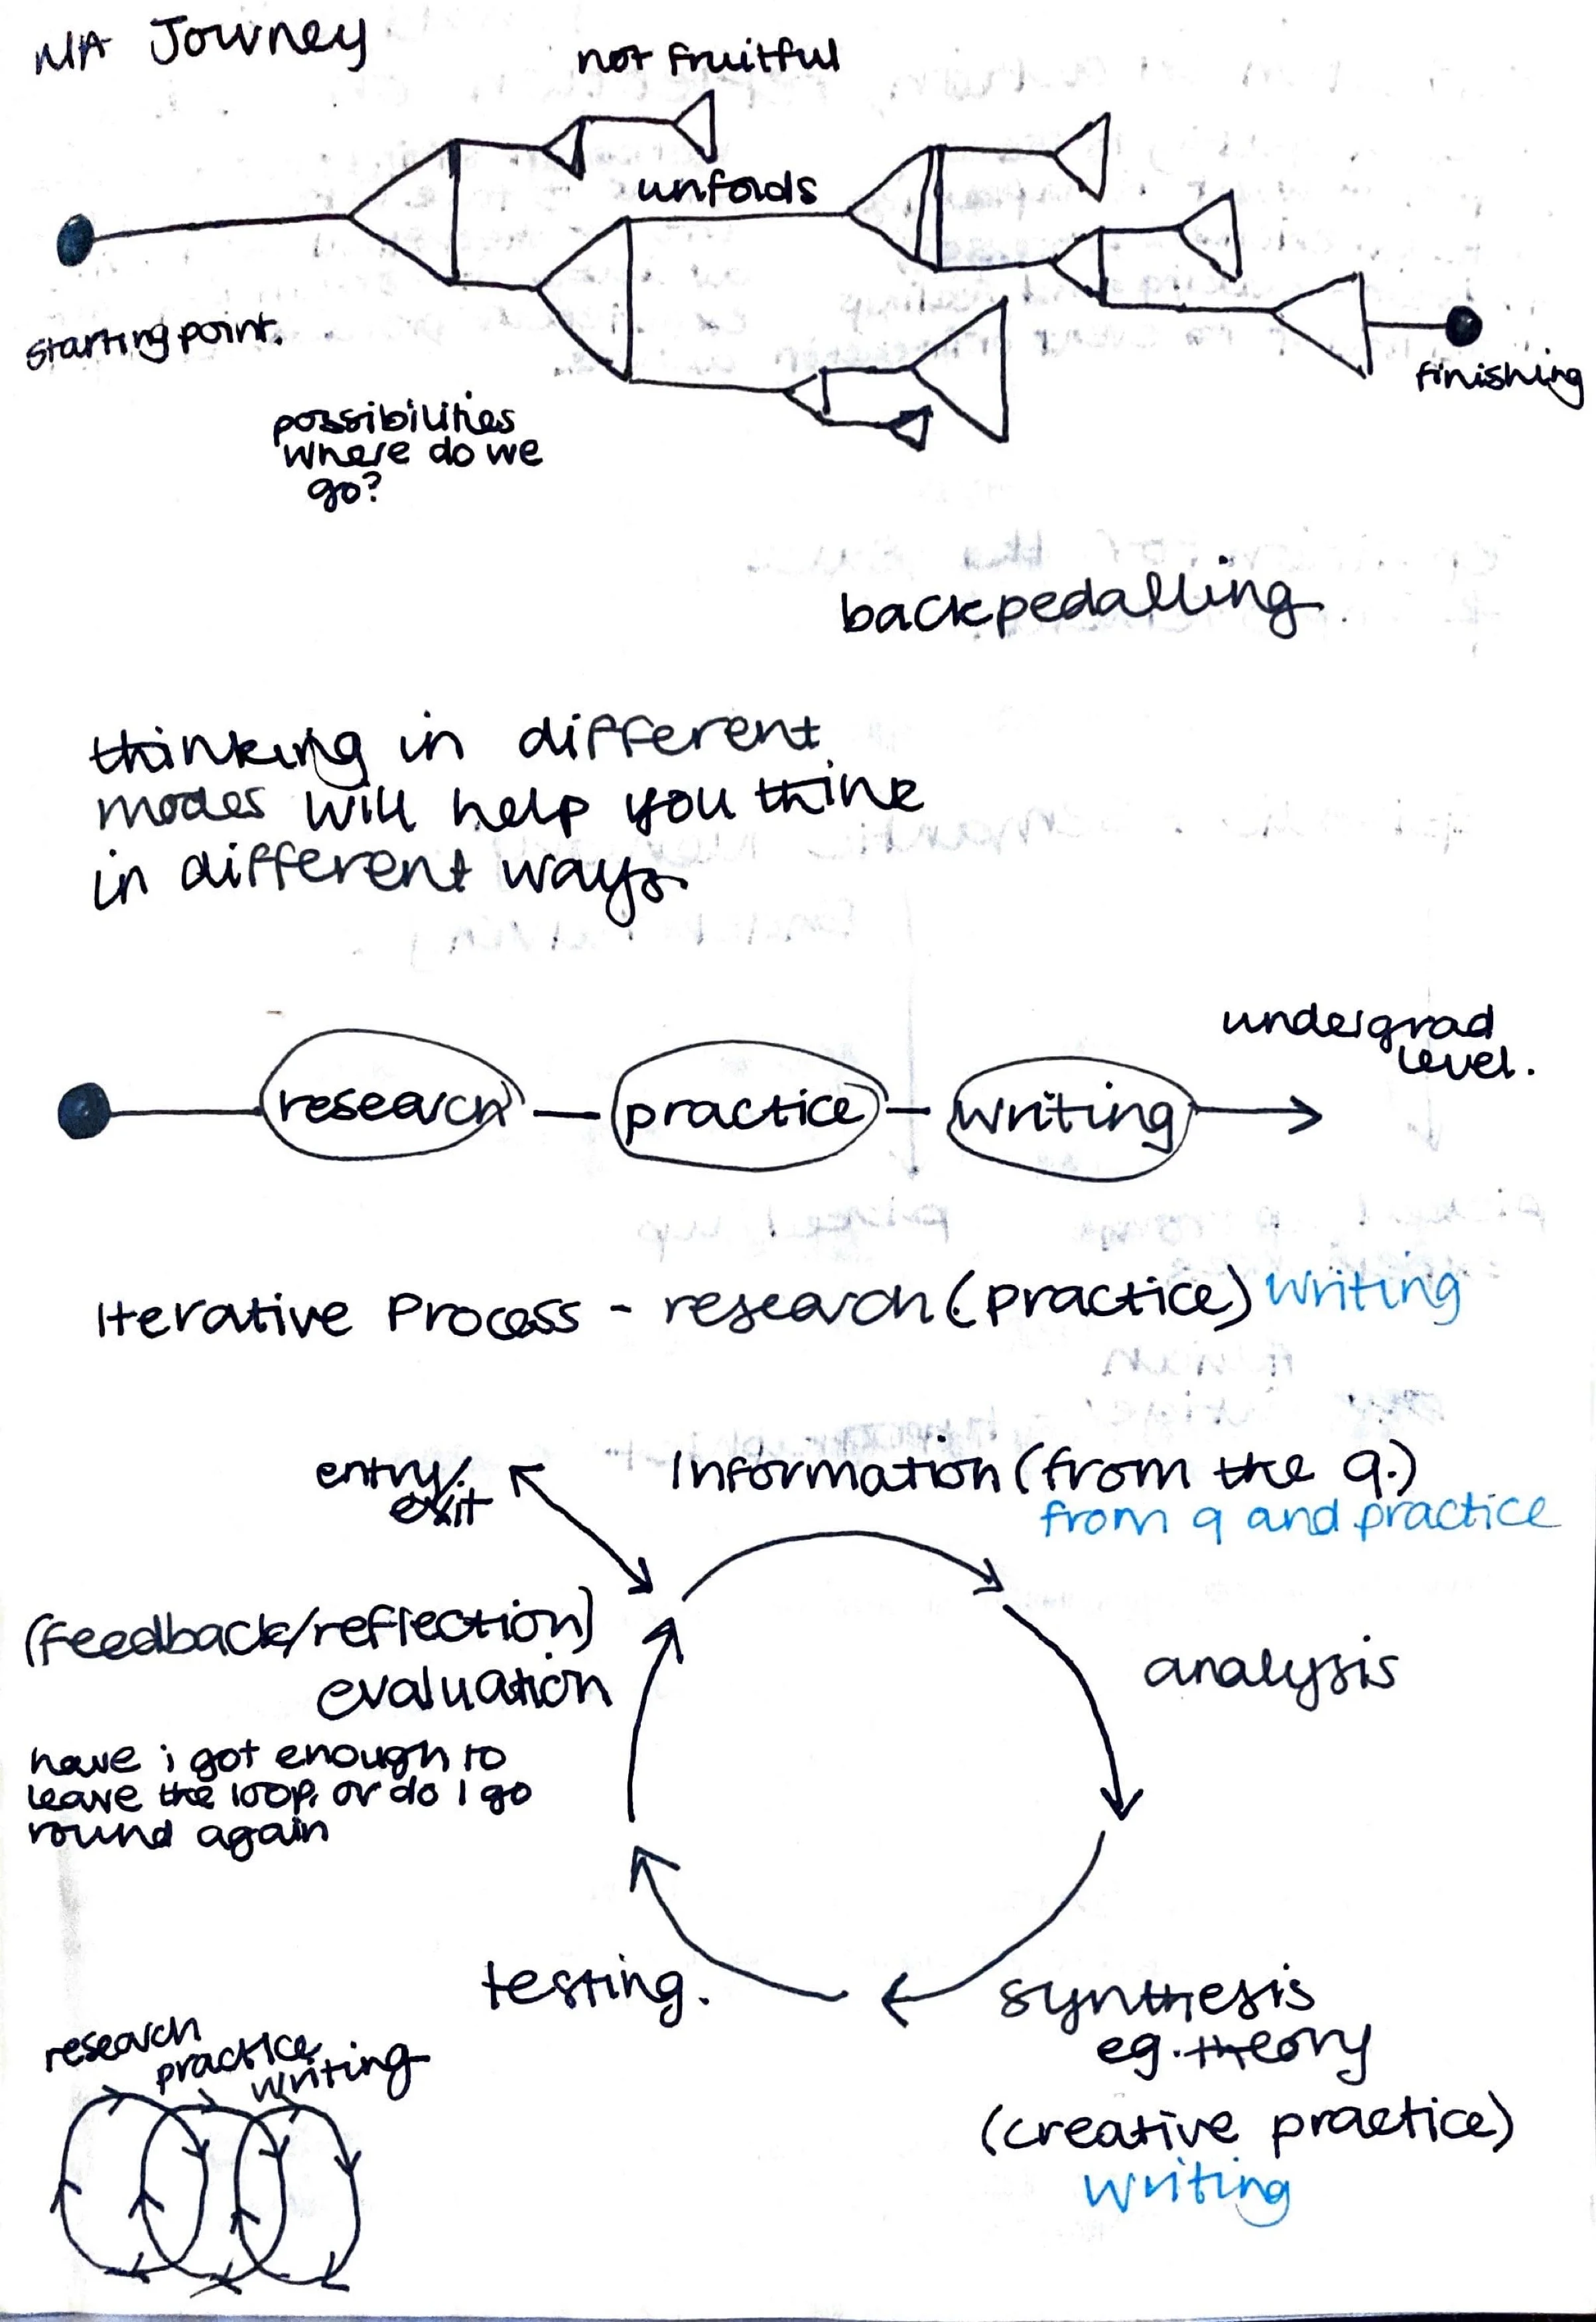 MA Journey
not fruitful
unfolds
starting point.
finishing
possibilities
where do we
go?
backpedalling.
thinking in different
modes will help you think
in different ways.
undergrad
level.
research – practice – writing
Iterative Process - research (practice) writing
entry/
exit
Information (from the q.)
from q and practice
(feedback/reflection)
evaluation
analysis
have i got enough to
leave the loop, or do I go
round again
testing.
synthesis
eg. theory
(creative practice)
writing
research
practice
writing